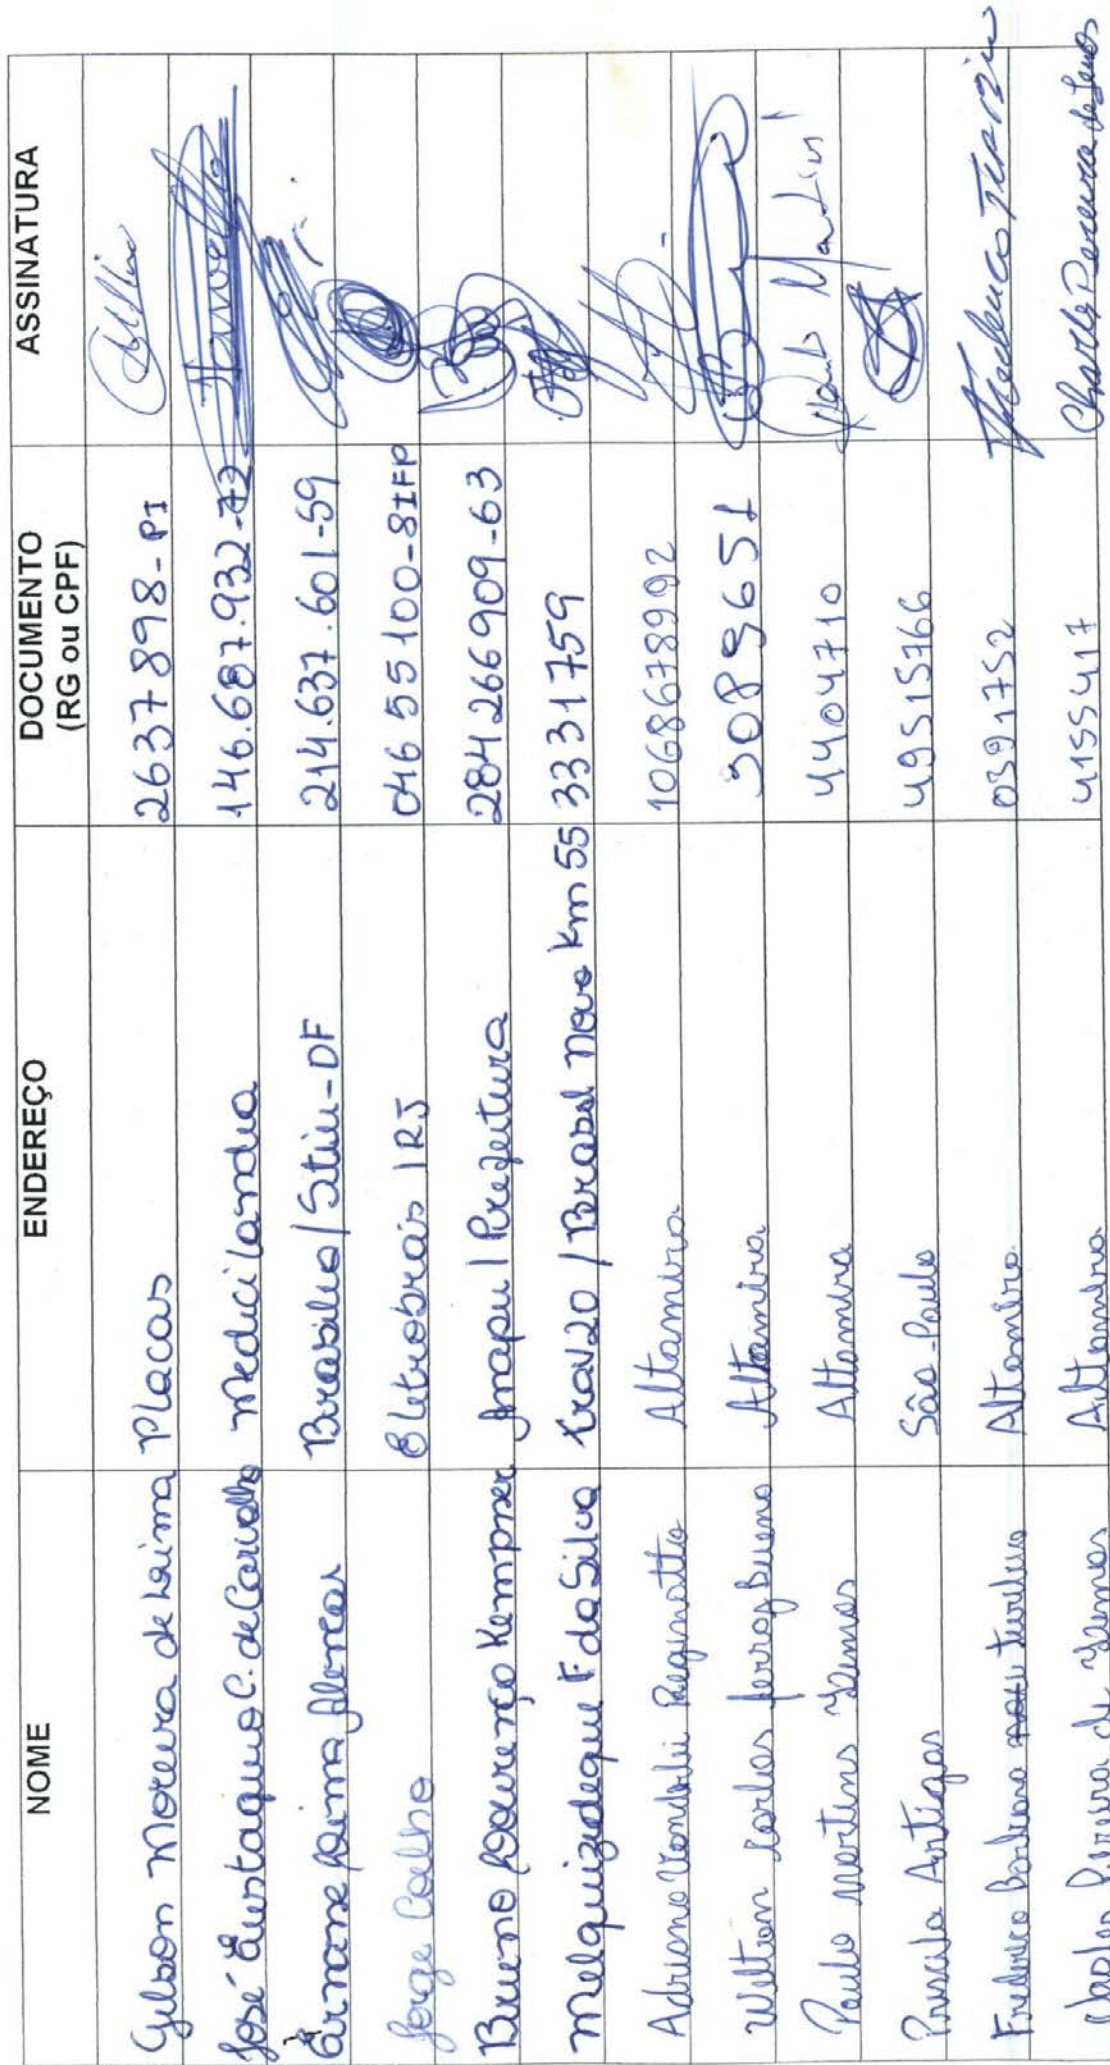 NOME ENDEREÇO DOCUMENTO (RG ou CPF) ASSINATURA
Gilson Moreira de Lima Placas 2637898-PI
José Eustaquio C. de Carvalho Medicilandia 146.687.932-72
Lima Alencar Brasilia/Sitiu-DF 214.637.601-59
Jorge Coelho Eletrobrás/RJ 04655100-8IFP
Bruno Lourenço Kempner Anapu/Prefeitura 284266909-63
Melquizedeque F da Silva trav20/Brasil Novo Km 55 3331759
Adriano Reginatto Altamira 1068678992
Wilton Carlos ferroz Bueno Altamira 3089651
Paulo Martins Lemos Altamira 4404710 Paulo Martins
Priscila Artigas São-Paulo 49515766
Frederico Barbosa Altamira 0391752
Charles Pereira de Lemos Altamira 4155417 Charles Pereira de Lemos